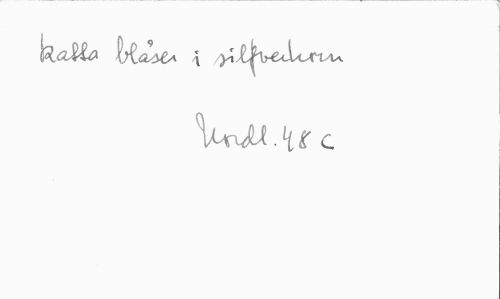 kassa blåser i silfverhorn
Nordl. 48 C